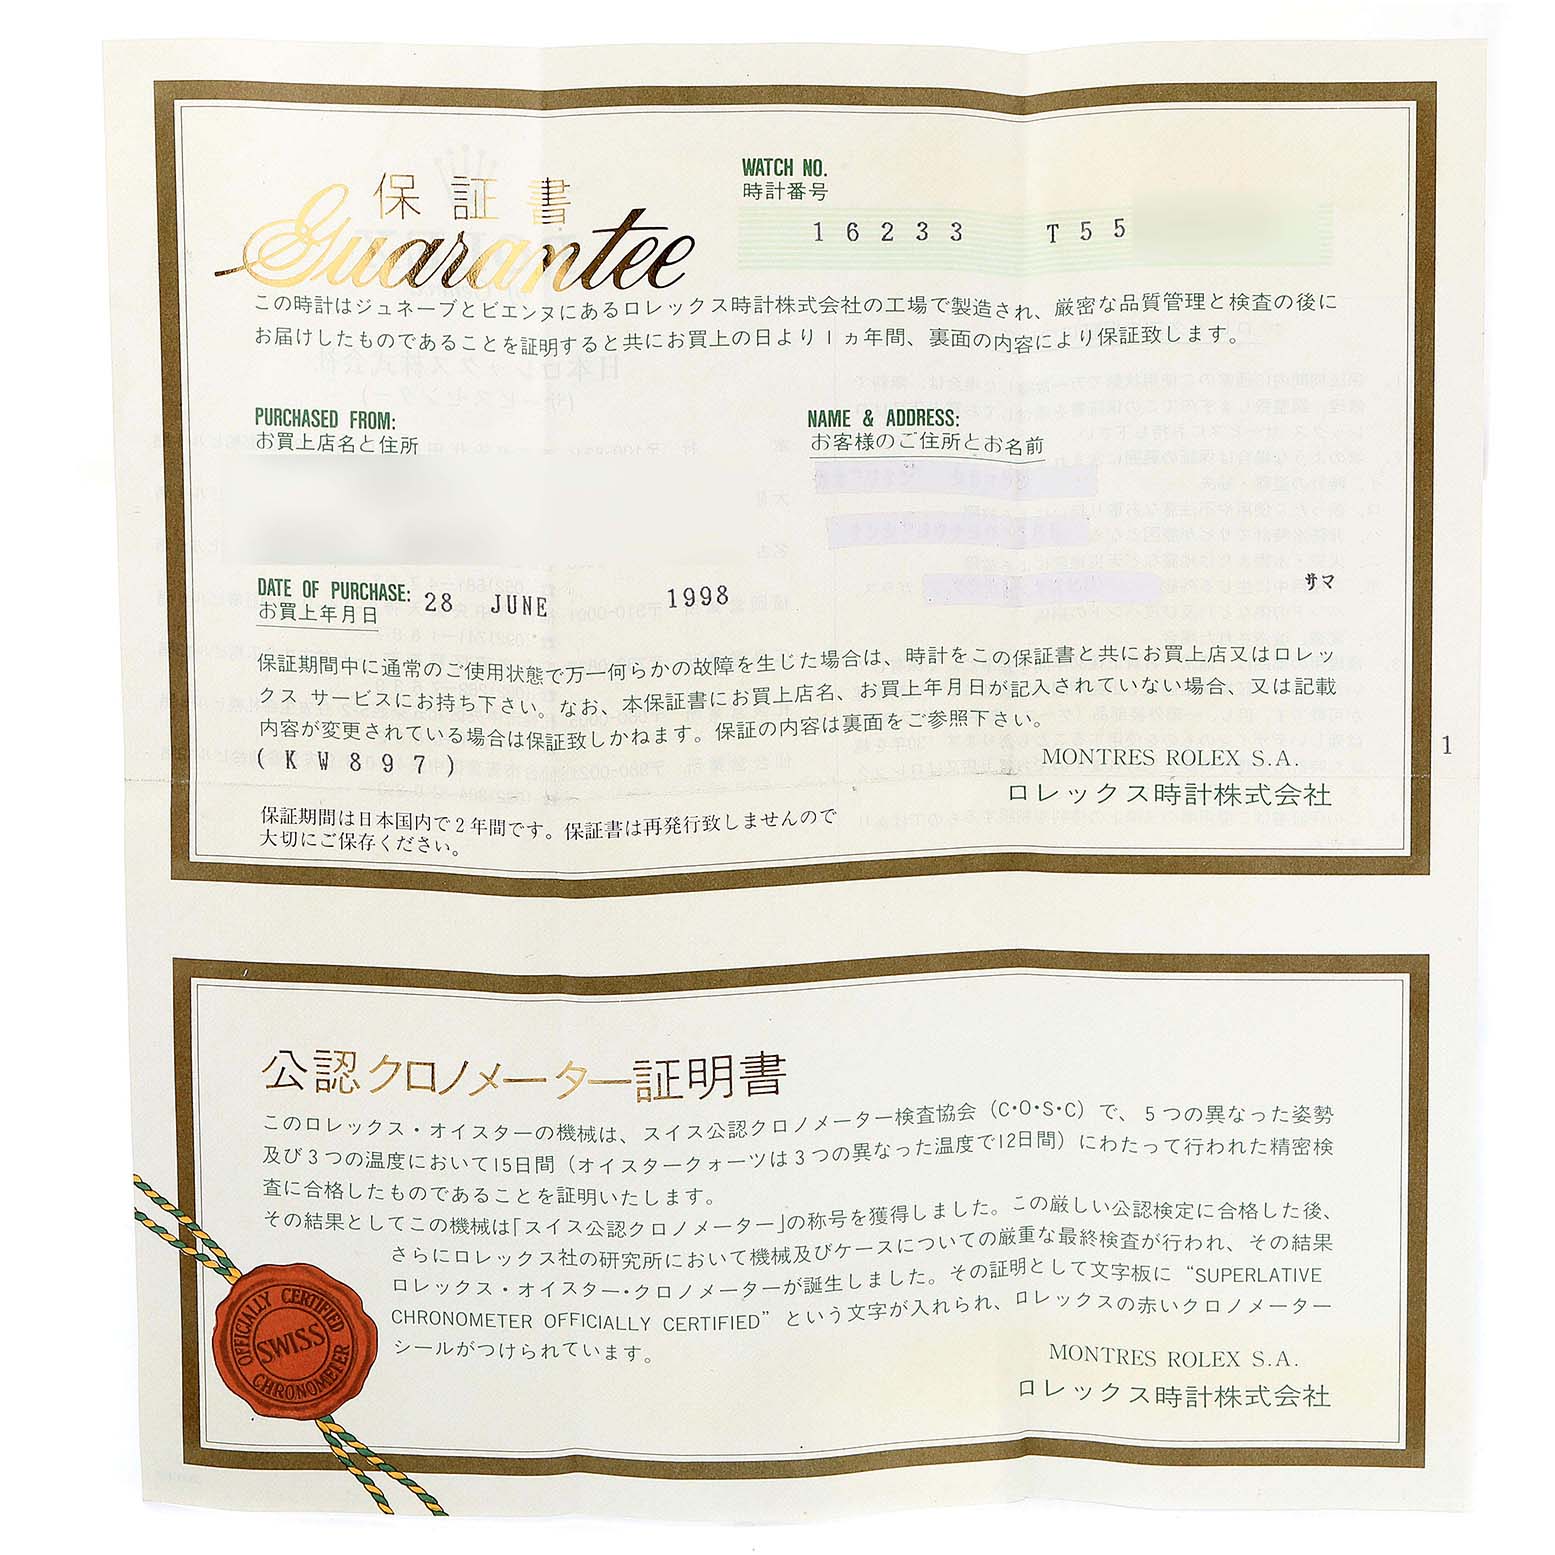 保証書
Guarantee
WATCH NO.
時計番号
16233 T55
この時計はジュネーブとビエンヌにあるロレックス時計株式会社の工場で製造され、厳密な品質管理と検査の後に
お届けしたものであることを証明すると共にお買上の日より1ヵ年間、裏面の内容により保証致します。
PURCHASED FROM:
お買上店名と住所
NAME & ADDRESS:
お客様のご住所とお名前
サマ
DATE OF PURCHASE: 28 JUNE 1998
お買上年月日
保証期間中に通常のご使用状態で万一何らかの故障を生じた場合は、時計をこの保証書と共にお買上店又はロレッ
クス サービスにお持ち下さい。なお、本保証書にお買上店名、お買上年月日が記入されていない場合、又は記載
内容が変更されている場合は保証致しかねます。保証の内容は裏面をご参照下さい。
(KW897)
MONTRES ROLEX S.A.
ロレックス時計株式会社
1
保証期間は日本国内で2年間です。保証書は再発行致しませんので
大切にご保存ください。
公認クロノメーター証明書
このロレックス・オイスターの機械は、スイス公認クロノメーター検査協会(C・O・S・C)で、5つの異なった姿勢
及び3つの温度において15日間(オイスタークォーツは3つの異なった温度で12日間)にわたって行われた精密検
査に合格したものであることを証明いたします。
その結果としてこの機械は「スイス公認クロノメーター」の称号を獲得しました。この厳しい公認検定に合格した後、
さらにロレックス社の研究所において機械及びケースについての厳重な最終検査が行われ、その結果
ロレックス・オイスター・クロノメーターが誕生しました。その証明として文字板に “SUPERLATIVE
CHRONOMETER OFFICIALLY CERTIFIED” という文字が入れられ、ロレックスの赤いクロノメーター
シールがつけられています。
OFFICIALLY CERTIFIED
SWISS
CHRONOMETER
MONTRES ROLEX S.A.
ロレックス時計株式会社